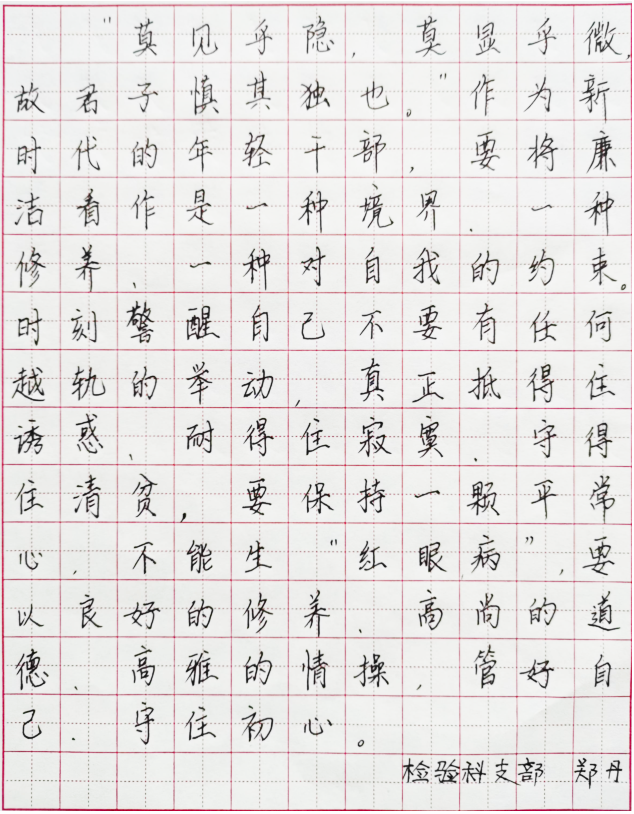 “莫见乎隐，莫显乎微，
故君子慎其独也。”作为新
时代的年轻干部，要将廉
洁看作是一种境界、一种
修养、一种对自我的约束。
时刻警醒自己不要有任何
越轨的举动，真正抵得住
诱惑、耐得住寂寞、守得
住清贫，要保持一颗平常
心，不能生“红眼病”，要
以良好的修养、高尚的道
德、高雅的情操，管好自
己、守住初心。
检验科支部 郑丹